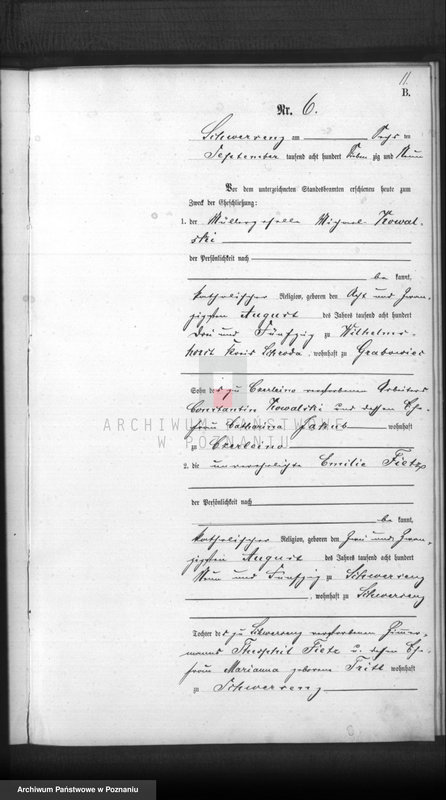 11.
B.
Nr. 6.
Schwersenz am Sechs ten
September tausend acht hundert sieben zig und Neun
Vor dem unterzeichneten Standesbeamten erschienen heute zum
Zweck der Eheschließung:
1. der Müllergeselle Michael Kowal-
ski
der Persönlichkeit nach
be kannt,
katholischer Religion, geboren den Acht und zwan-
zigsten August des Jahres tausend acht hundert
Drei und Fünfzig zu Wilhelms-
horst Kreis Schroda, wohnhaft zu Grabowiec
Sohn des zu Czerleino verstorbenen Arbeiters
Constantin Kowalski und dessen Ehe-
frau Catharina Jakub wohnhaft
zu Czerleino
2. die unverehelichte Emilie Fietz
der Persönlichkeit nach
be kannt,
katholischer Religion, geboren den Zwei und zwan-
zigsten August des Jahres tausend acht hundert
Neun und Fünfzig zu Schwersenz
, wohnhaft zu Schwersenz
Tochter des zu Schwersenz verstorbenen Zimmer-
manns Theophil Fietz u. dessen Ehe-
frau Marianna geborene Tritt wohnhaft
zu Schwersenz
ARCHIWUM PAŃSTWOWE
W POZNANIU
Archiwum Państwowe w Poznaniu